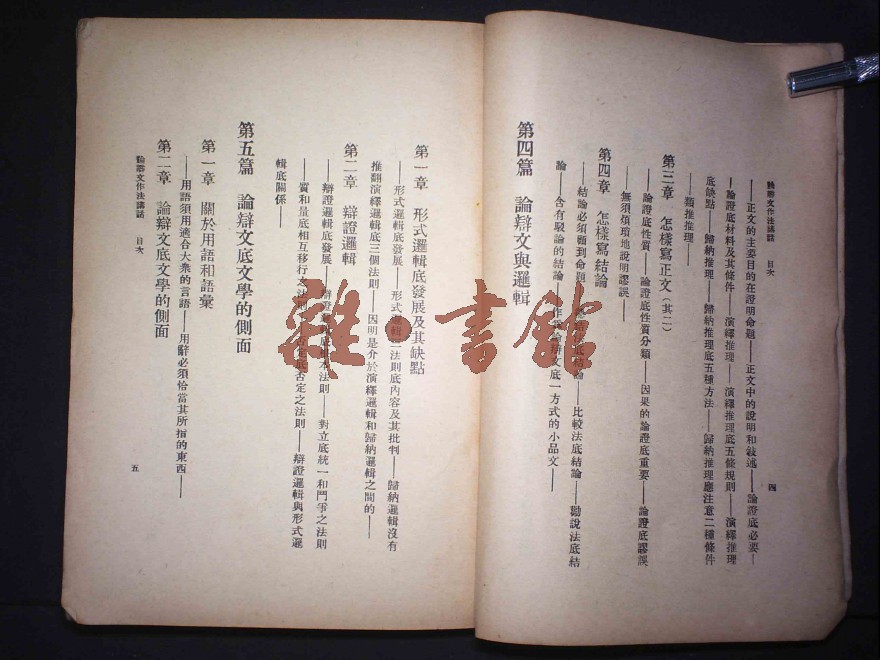 論辯文作法講話 目次
四
——正文的主要目的在證明命題——正文中的說明和敍述——論證底必要—
—論證底材料及其條件——演繹推理——演繹推理底五條規則——演繹推理
底缺點——歸納推理——歸納推理底五種方法——歸納推理應注意二種條件
——類推推理——
第三章 怎樣寫正文(其二)
——論證底性質——論證底性質分類——因果的論證底重要——論證底謬誤
——無須煩瑣地說明謬誤——
第四章 怎樣寫結論
——結論必須顧到命題——總括法底結論——比較法底結論——勸說法底結
論——含有駁論的結論——作為論辯文底一方式的小品文——
第四篇 論辯文與邏輯
第一章 形式邏輯底發展及其缺點
——形式邏輯底發展——形式邏輯三法則底內容及其批判——歸納邏輯沒有
推翻演繹邏輯底三個法則——因明是介於演繹邏輯和歸納邏輯之間的——
第二章 辯證邏輯
——辯證邏輯底發展——辯證邏輯底根本法則——對立底統一和鬥爭之法則
——質和量底相互移行之法則——否定底否定之法則——辯證邏輯與形式邏
輯底關係——
第五篇 論辯文底文學的側面
第一章 關於用語和語彙
——用語須用適合大衆的言語——用辭必須恰當其所指的東西——
第二章 論辯文底文學的側面
論辯文作法講話 目次
五
雜·書館